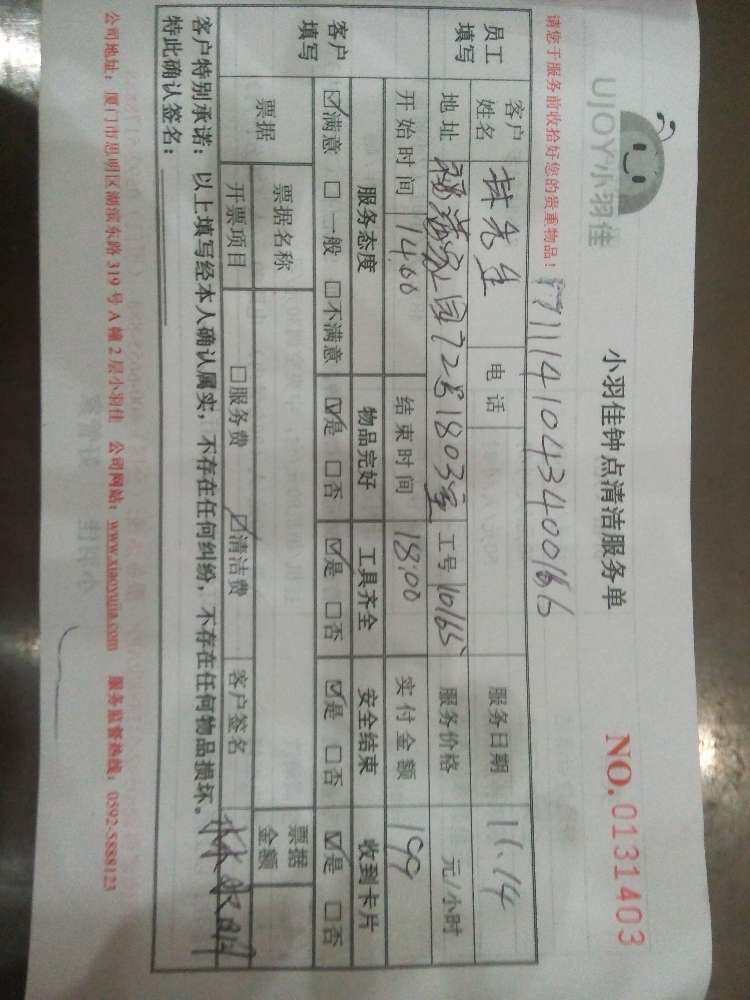 UJOY小羽佳
小羽佳钟点清洁服务单
NO. 0131403
请您于服务前收拾好您的贵重物品！
员工填写 客户姓名 林先生 电话 服务日期 11.14
地址 1803室 工号 10165 服务价格 元/小时
开始时间 14.00 结束时间 18.00 实付金额 199
客户填写 服务态度 物品完好 工具齐全 安全结束 收到卡片
☑满意 □一般 □不满意 ☑是 □否 ☑是 □否 ☑是 □否 ☑是 □否
票据 票据名称 票据金额
开票项目 □服务费 ☑清洁费 客户签名
客户特别承诺：以上填写经本人确认属实，不存在任何纠纷，不存在任何物品损坏。
特此确认签名：
公司地址：厦门市思明区湖滨东路319号A幢2层小羽佳 公司网站：www.xiaoyujia.com 服务监督热线：0592-5888123